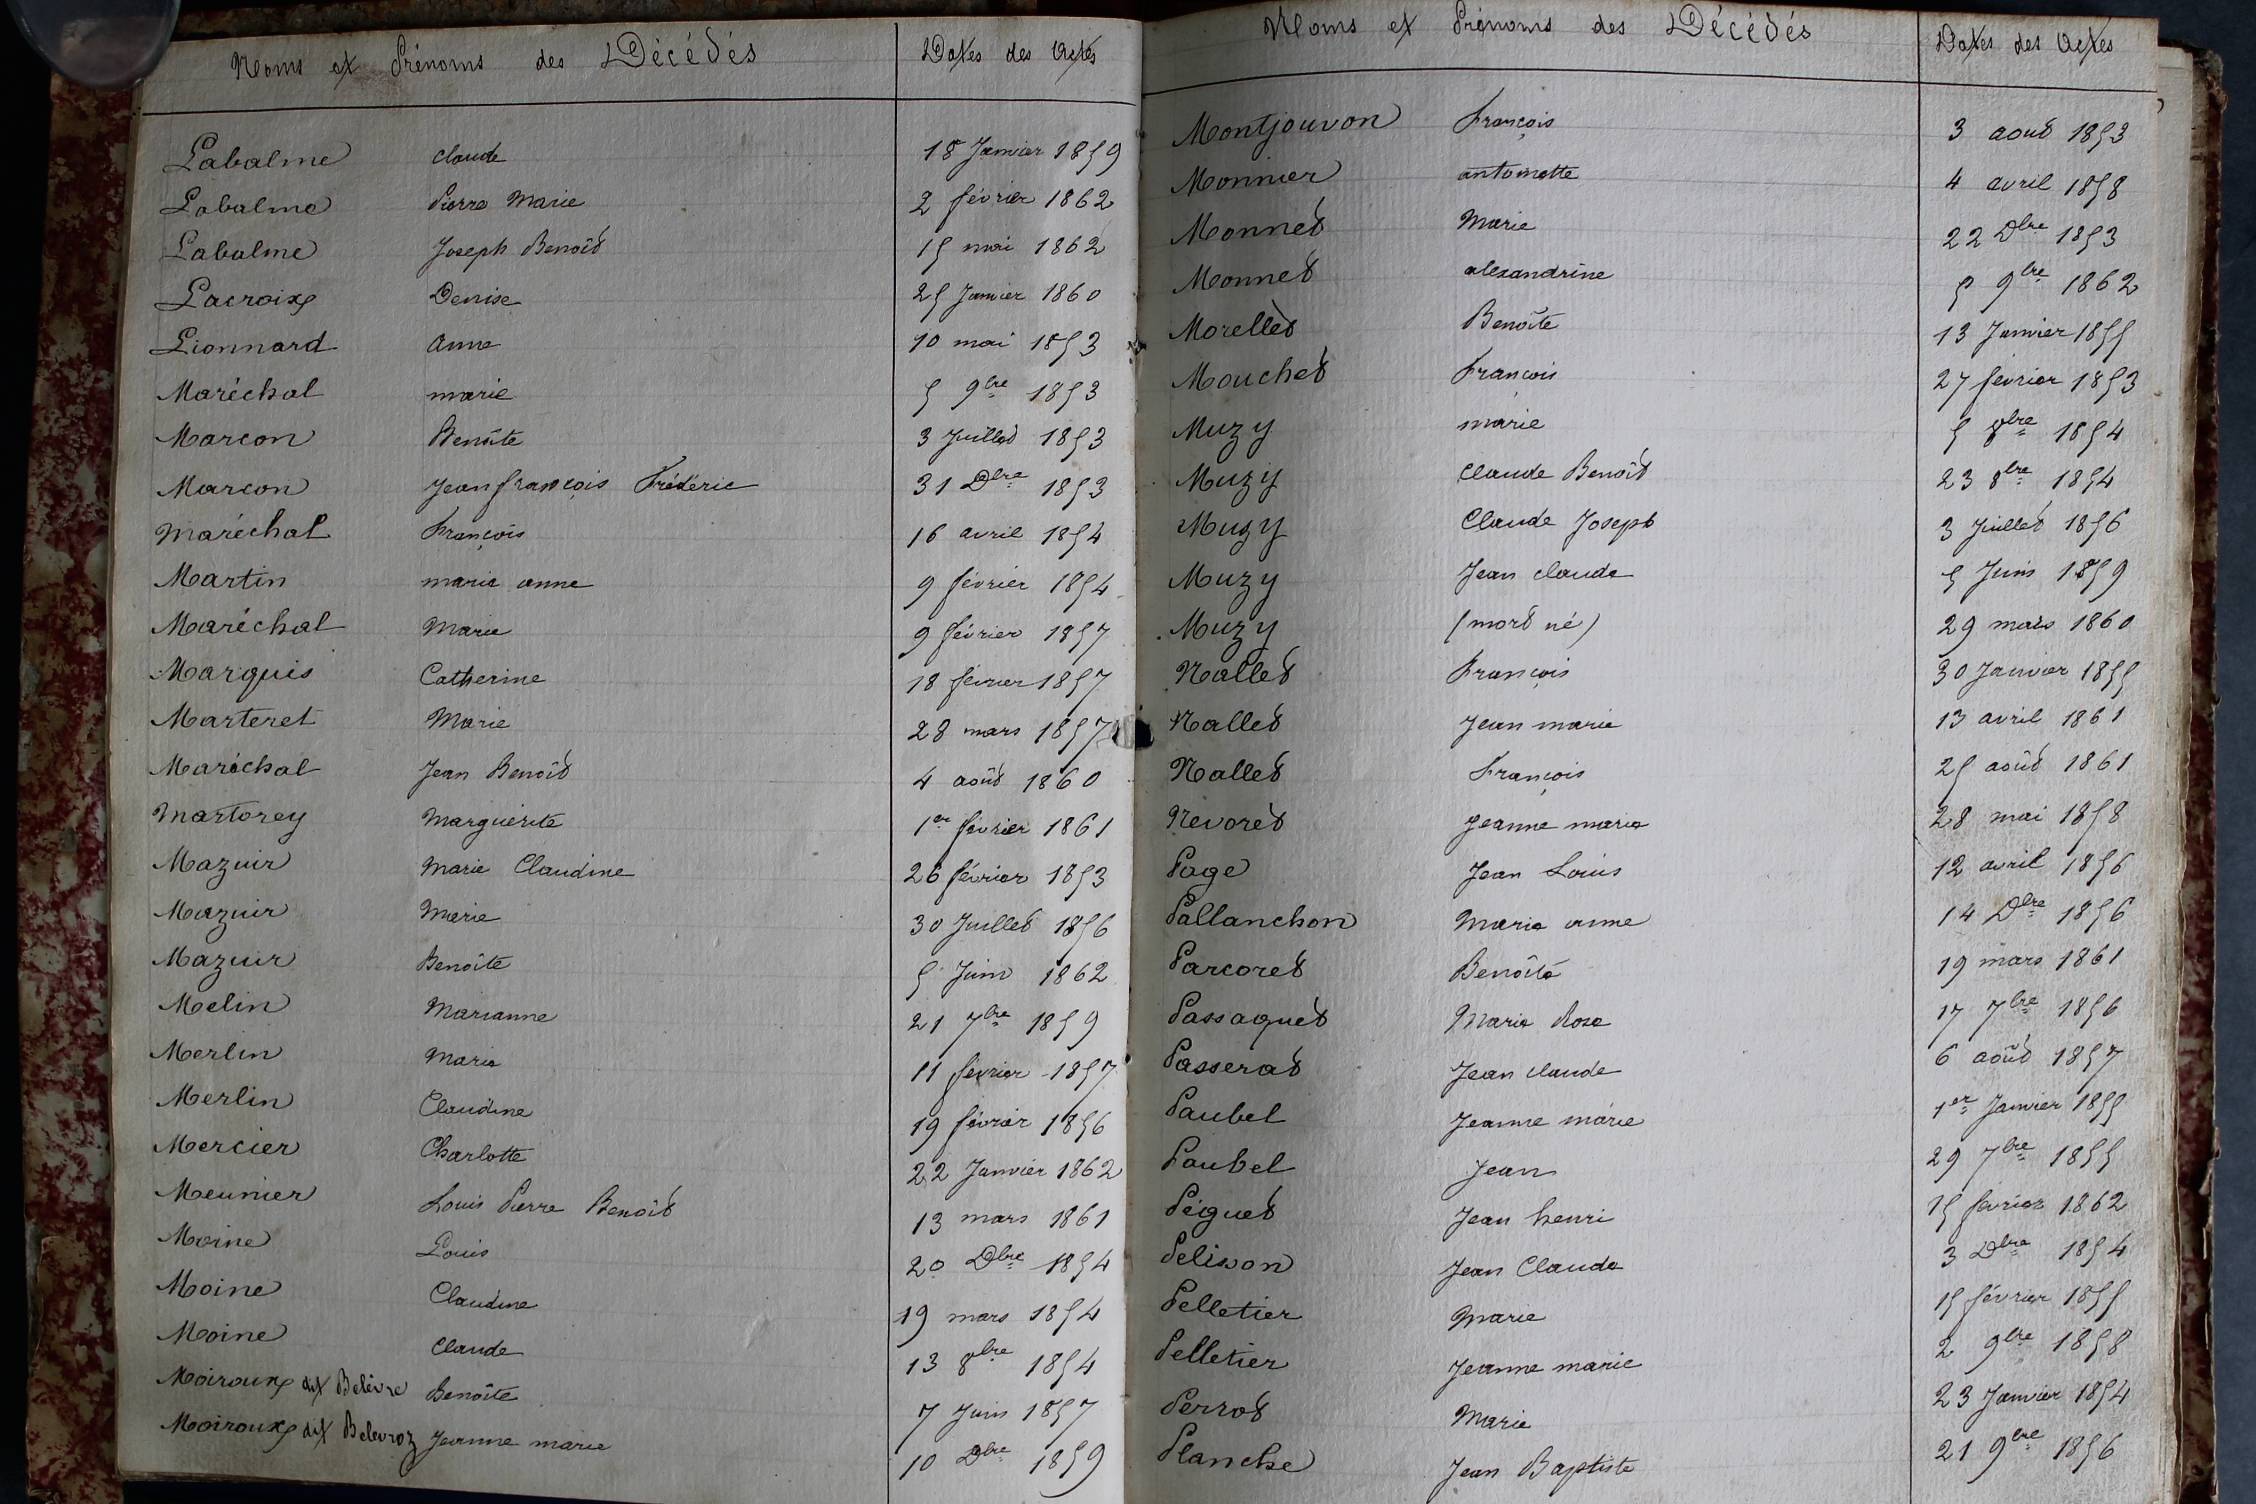 Noms et Prénoms des Décédés Dates des Actes
Labalme Claude 18 Janvier 1859
Labalme Pierre Marie 2 février 1862
Labalme Joseph Benoît 15 mai 1862
Lacroix Denise 25 Janvier 1860
Lionnard Anne 10 mai 1853
Maréchal marie 5 9bre 1853
Marcon Benoîte 3 Juillet 1853
Marcon Jean françois Frédéric 31 Dbre 1853
Maréchal François 16 avril 1854
Martin marie anne 9 février 1854
Maréchal Marie 9 février 1857
Marquis Catherine 18 février 1857
Marteret Marie 28 mars 1857
Maréchal Jean Benoît 4 août 1860
Martorey Marguerite 1er février 1861
Mazuir Marie Claudine 26 février 1853
Mazuir Marie 30 Juillet 1856
Mazuir Benoîte 5 Juin 1862
Melin Marianne 21 7bre 1859
Merlin Marie 11 février 1857
Merlin Claudine 19 février 1856
Mercier Charlotte 22 Janvier 1862
Meunier Louis Pierre Benoît 13 mars 1861
Moine Louis 20 Dbre 1854
Moine Claudine 19 mars 1854
Moine Claude 13 8bre 1854
Moiroux dit Belèvre Benoîte 7 Juin 1857
Moiroux dit Belevroz Jeanne marie 10 Dbre 1859
Noms et Prénoms des Décédés Dates des Actes
Montjouvon François 3 aout 1853
Monnier antoinette 4 avril 1858
Monnet Marie 22 Dbre 1853
Monnet alexandrine 5 9bre 1862
Morellet Benoîte 13 Janvier 1855
Mouchet François 27 février 1853
Muzy marie 5 8bre 1854
Muzy Claude Benoît 23 8bre 1854
Muzy Claude Joseph 3 Juillet 1856
Muzy Jean claude 5 Juin 1859
Muzy (mort né) 29 mars 1860
Nallet François 30 Janvier 1855
Nallet Jean marie 13 avril 1861
Nallet François 25 août 1861
Nevoret Jeanne marie 28 mai 1858
Page Jean Louis 12 avril 1856
Pallanchon Marie anne 14 Dbre 1856
Parcoret Benoîte 19 mars 1861
Passaquet Marie Rose 17 7bre 1856
Passerat Jean claude 6 août 1857
Paubel Jeanne marie 1er Janvier 1855
Paubel Jean 29 7bre 1855
Péguet Jean henri 15 février 1862
Pelisson Jean Claude 3 Dbre 1854
Pelletier Marie 15 février 1855
Pelletier Jeanne marie 2 9bre 1858
Perrot Marie 23 Janvier 1854
Planche Jean Baptiste 21 9bre 1856